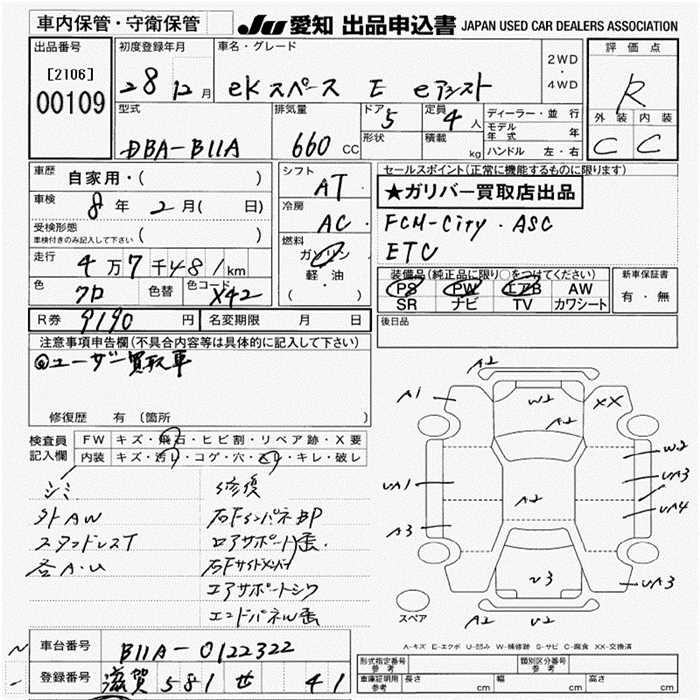 車内保管・守衛保管
JU 愛知 出品申込書 JAPAN USED CAR DEALERS ASSOCIATION
出品番号
[2106]
00109
初度登録年月
28 12月
車名・グレード
eKスペース E eアシスト
2WD
・
4WD
評価点
R
外装 内装
C C
型式
DBA-B11A
排気量
660 CC
ドア 5
形状
定員 4人
積載 kg
ディーラー・並行
モデル年式 年
ハンドル 左・右
車歴 自家用・( )
車検 8年 2月( 日)
受検形態
車検付きのみ記入して下さい ( )
走行 4万7千481km
色 クロ 色替 色コード X42
R券 9190 円 名変期限 月 日
シフト AT
冷房 AC
燃料
ガソリン
軽・油
( ・ )
セールスポイント(正常に機能するものに限ります)
★ガリバー買取店出品
FCM-City . ASC
ETC
装備品(純正品に限り○をつけてください)
PS PW エアB AW
SR ナビ TV カワシート
新車保証書
有・無
後日品
注意事項申告欄(不具合内容等は具体的に記入して下さい)
◎ユーザー買取車
修復歴 有(箇所 )
検査員記入欄
FW キズ・飛石・ヒビ割・リペア跡・X要
内装 キズ・汚レ・コゲ・穴・スレ・キレ・破レ
シミ
外AW
スタッドレスT
各A.U
修復
右FインパネBP
コアサポート歪
右Fサイドメンバー
エアサポートシワ
エンドパネル歪
A2
A1
W2
XX
A2
W2
UA1
UA3
A2
UA4
A3
U3
UA3
A2
U2
スペア
A-キズ E-エクボ U-凹み W-補修跡 S-サビ C-腐食 XX-交換済
車台番号 B11A-0122322
登録番号 滋賀 581 せ 41
形式指定番号 参考
類別区分番号 参考
車庫証明用 参考 長さ cm 幅 cm 高さ cm